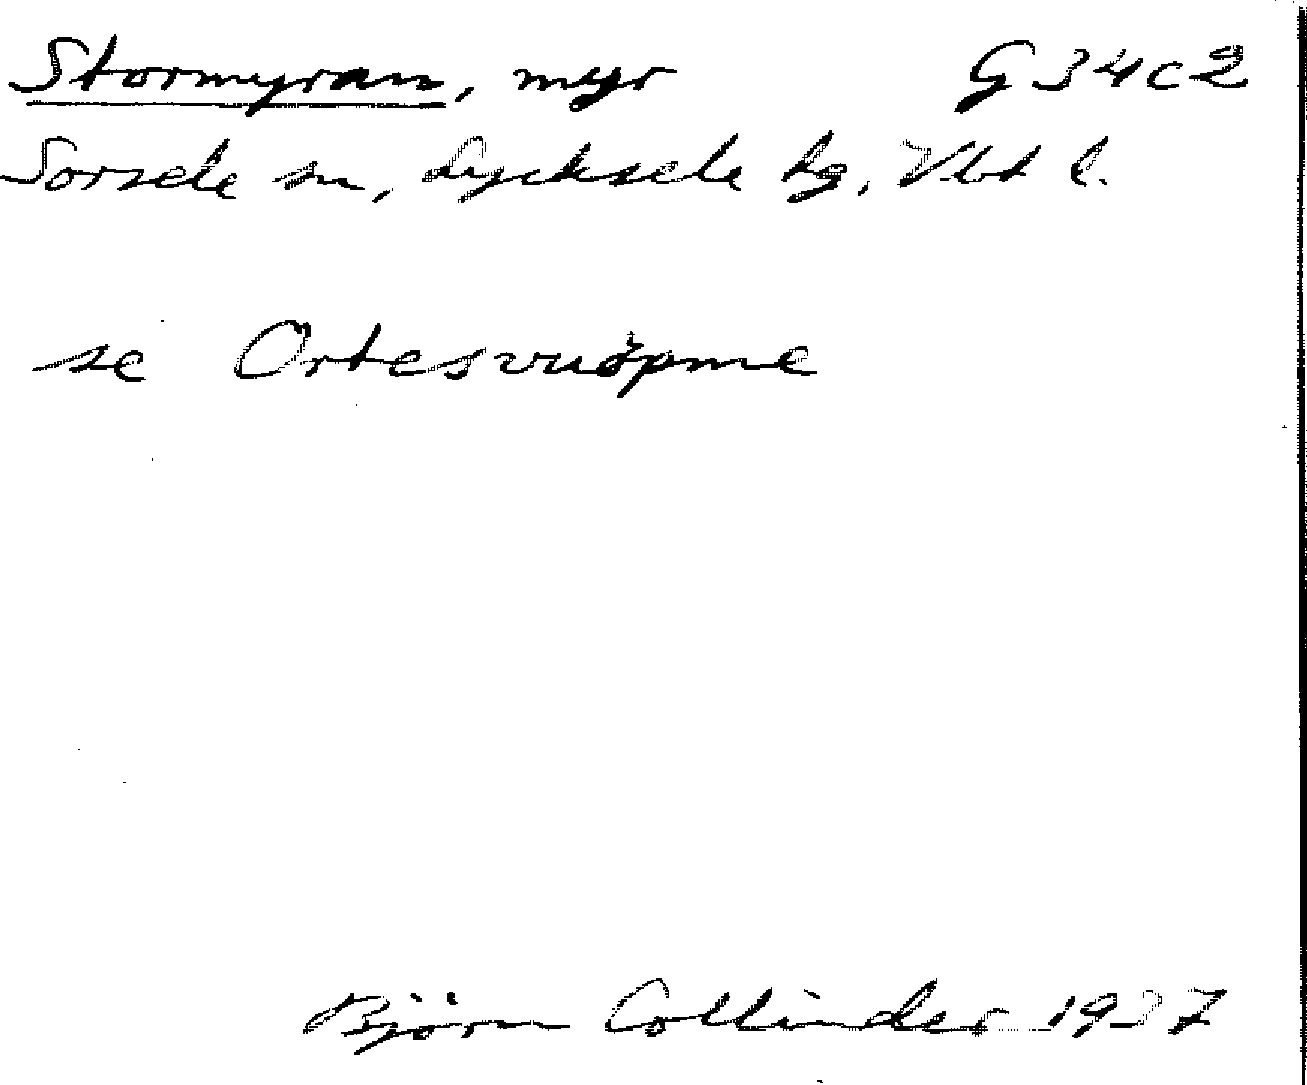 Stormyran, myr G 34 c 2
Sorsele sn, Lycksele lg, Vbt l.
se Ortesvuöpme
Björn Collinder 1937